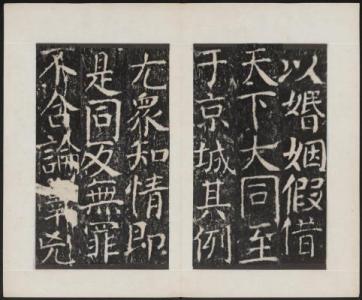 以婚姻假借
天下大同至
于京城其例
尤眾知情即
是同及無罪
不合論事